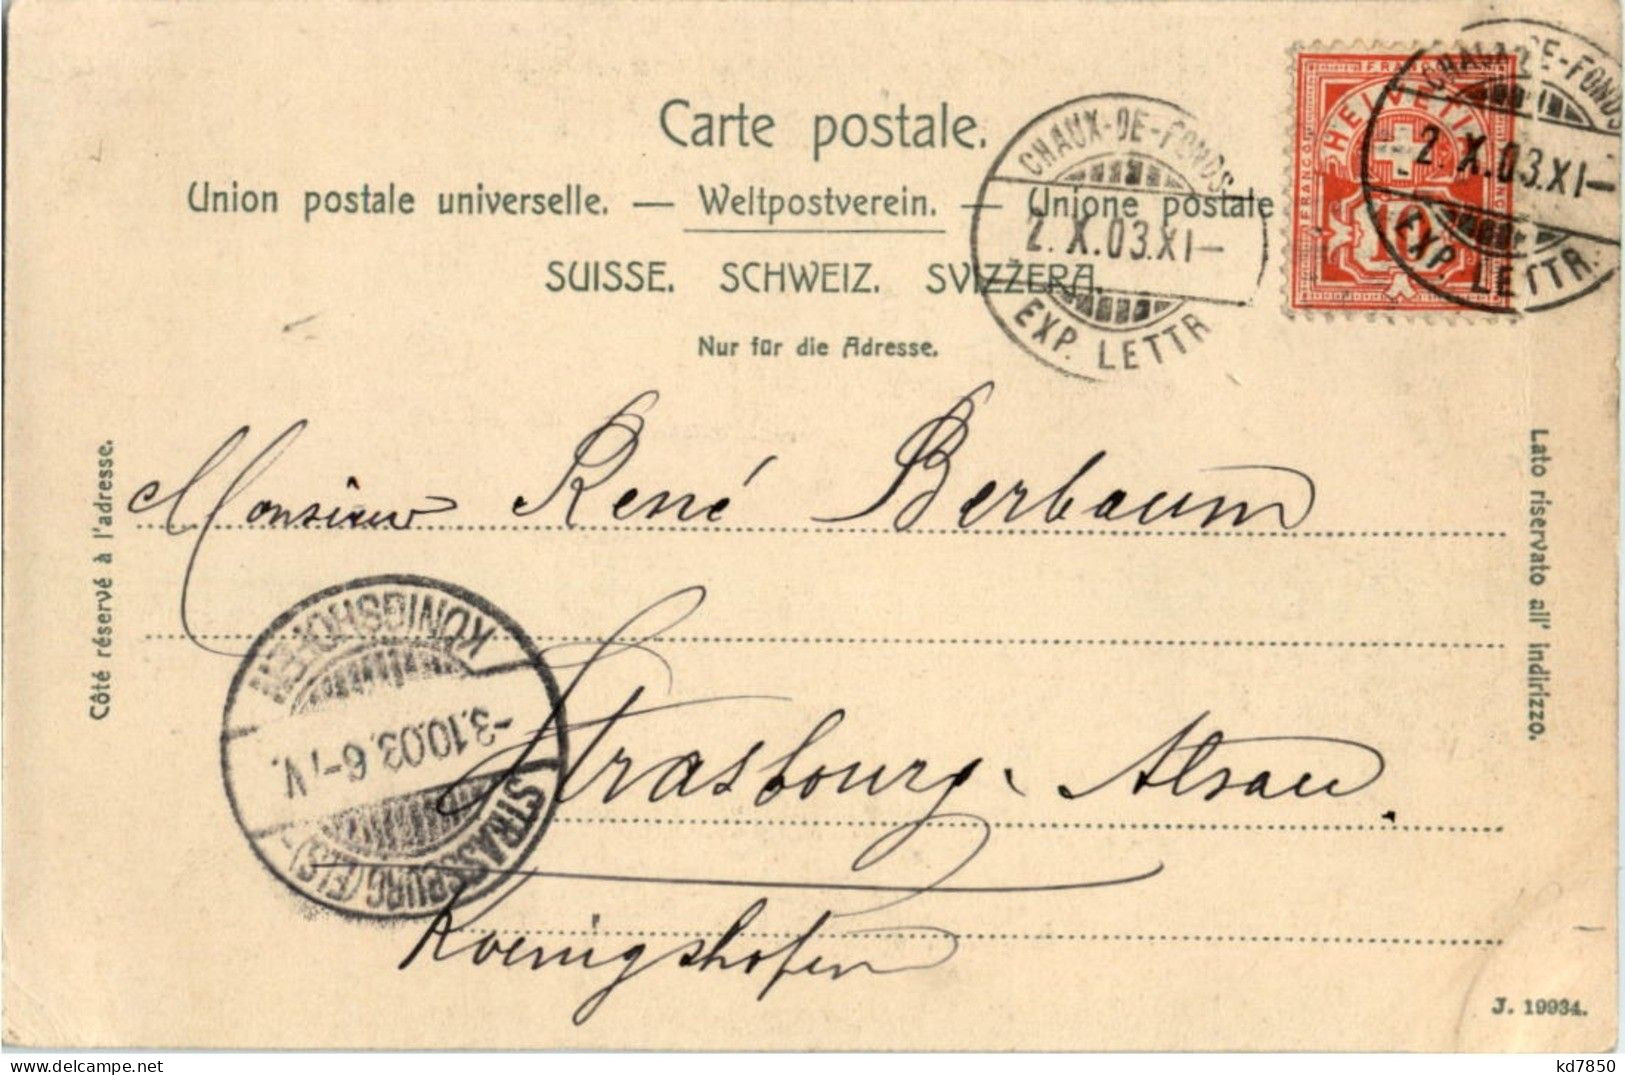 Carte postale.
Union postale universelle. — Weltpostverein. — Unione postale
SUISSE. SCHWEIZ. SVIZZERA.
Nur für die Adresse.
CHAUX-DE-FONDS
2. X.03.XI—
EXP. LETTR.
FRANCO
HELVETIA
FRANCO
10
CHAUX-DE-FONDS
2. X.03.XI—
EXP. LETTR.
Côté réservé à l'adresse.
Lato riservato all' indirizzo.
Monsieur René Berbaum
Strasbourg - Alsace.
Koenigshofen
STRASSBURG (ELS)-
-3.10.03. 6-7V.
KÖNIGSHOFEN
J. 19934.
kd7850